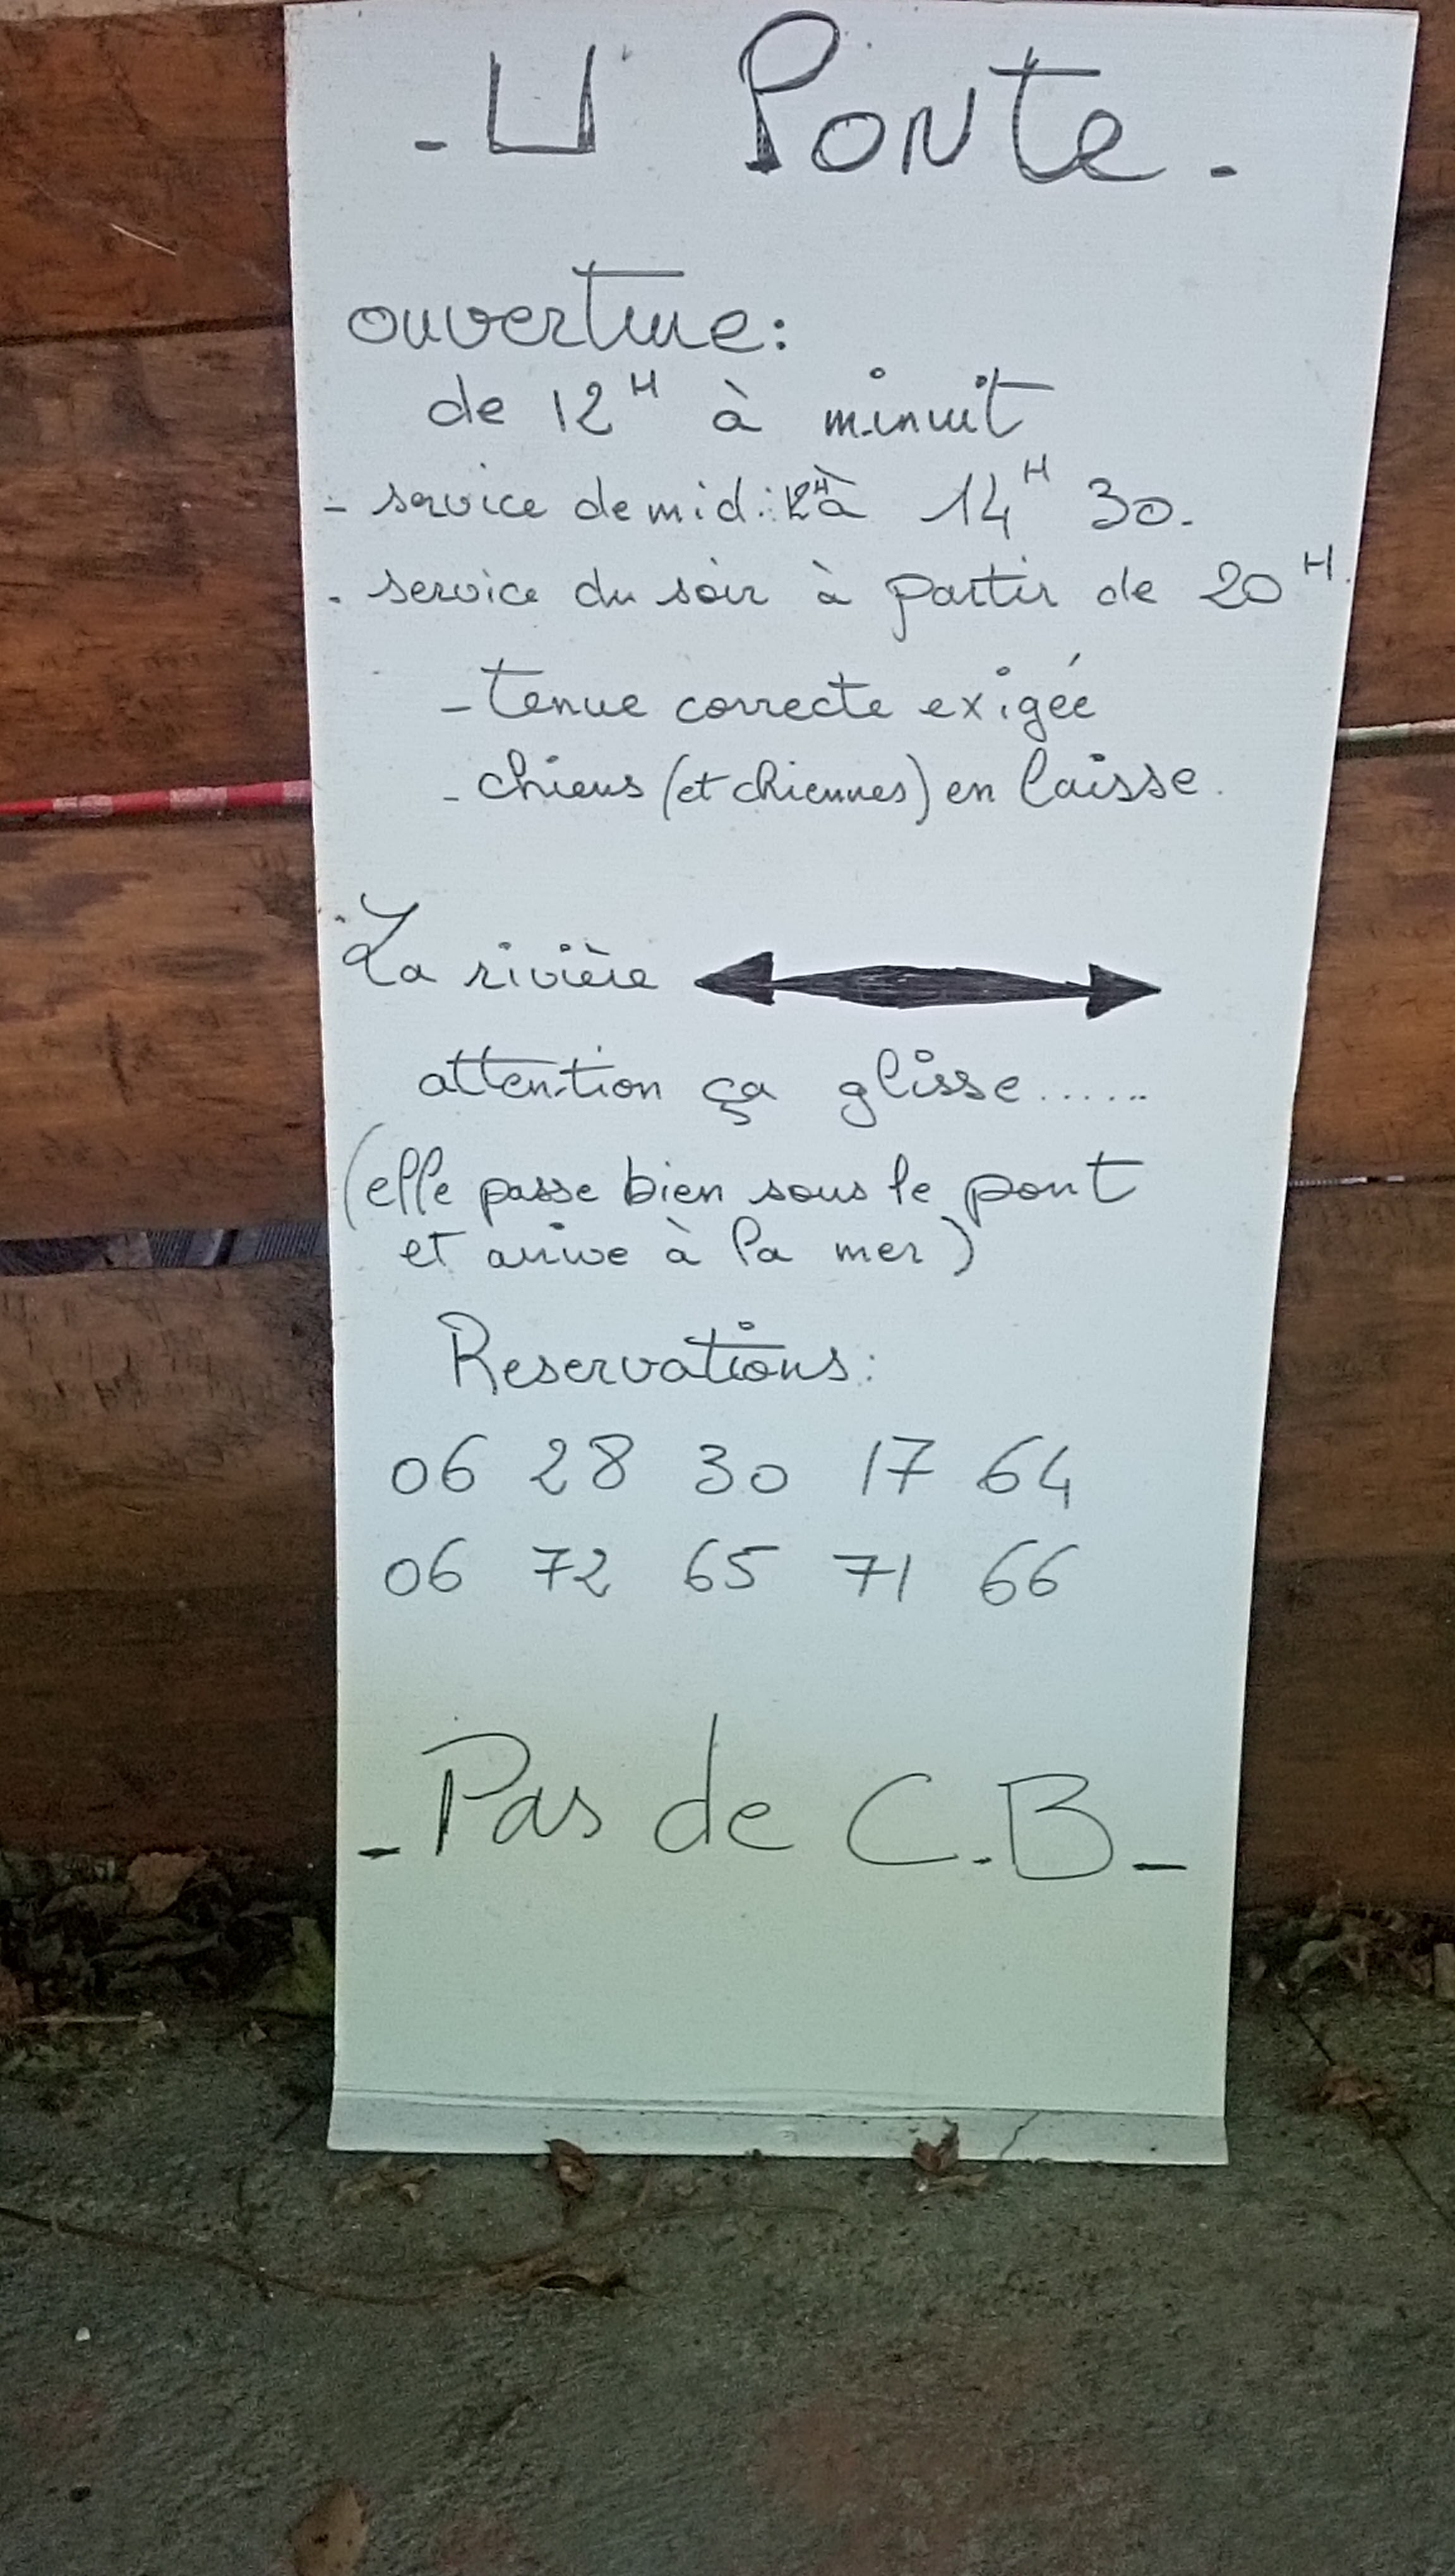 - U Ponte -
ouverture:
de 12H à minuit
- service de midi: 12H à 14H 30.
- service du soir à partir de 20H.
- tenue correcte exigée
- chiens (et chiennes) en laisse.
La rivière
attention ça glisse......
(elle passe bien sous le pont
et arrive à la mer)
Reservations:
06 28 30 17 64
06 72 65 71 66
- Pas de C.B -